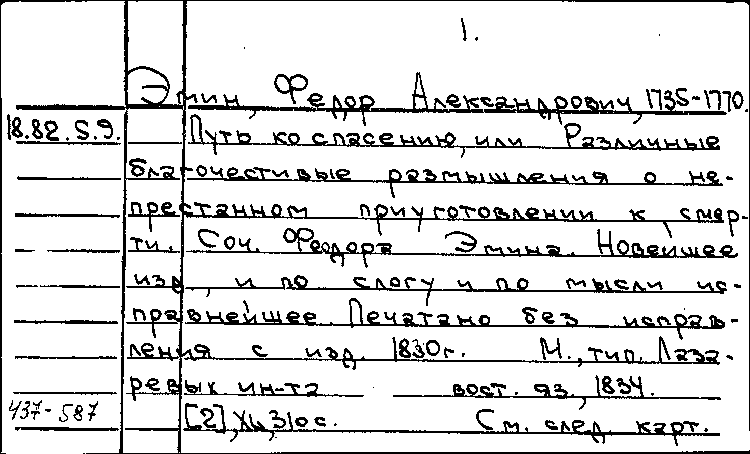 1.
Эмин, Федор Александрович, 1735-1770.
18.82.5.9. Путь ко спасению, или Различные
благочестивые размышления о не-
престанном приуготовлении к смер-
ти. Соч. Феодора Эмина. Новейшее
изд., и по слогу и по мысли ис-
правнейшее. Печатано без исправ-
ления с изд. 1830г. М., тип. Лаза-
ревых ин-та вост. яз., 1834.
437-587 [2], 310 с. См. след. карт.